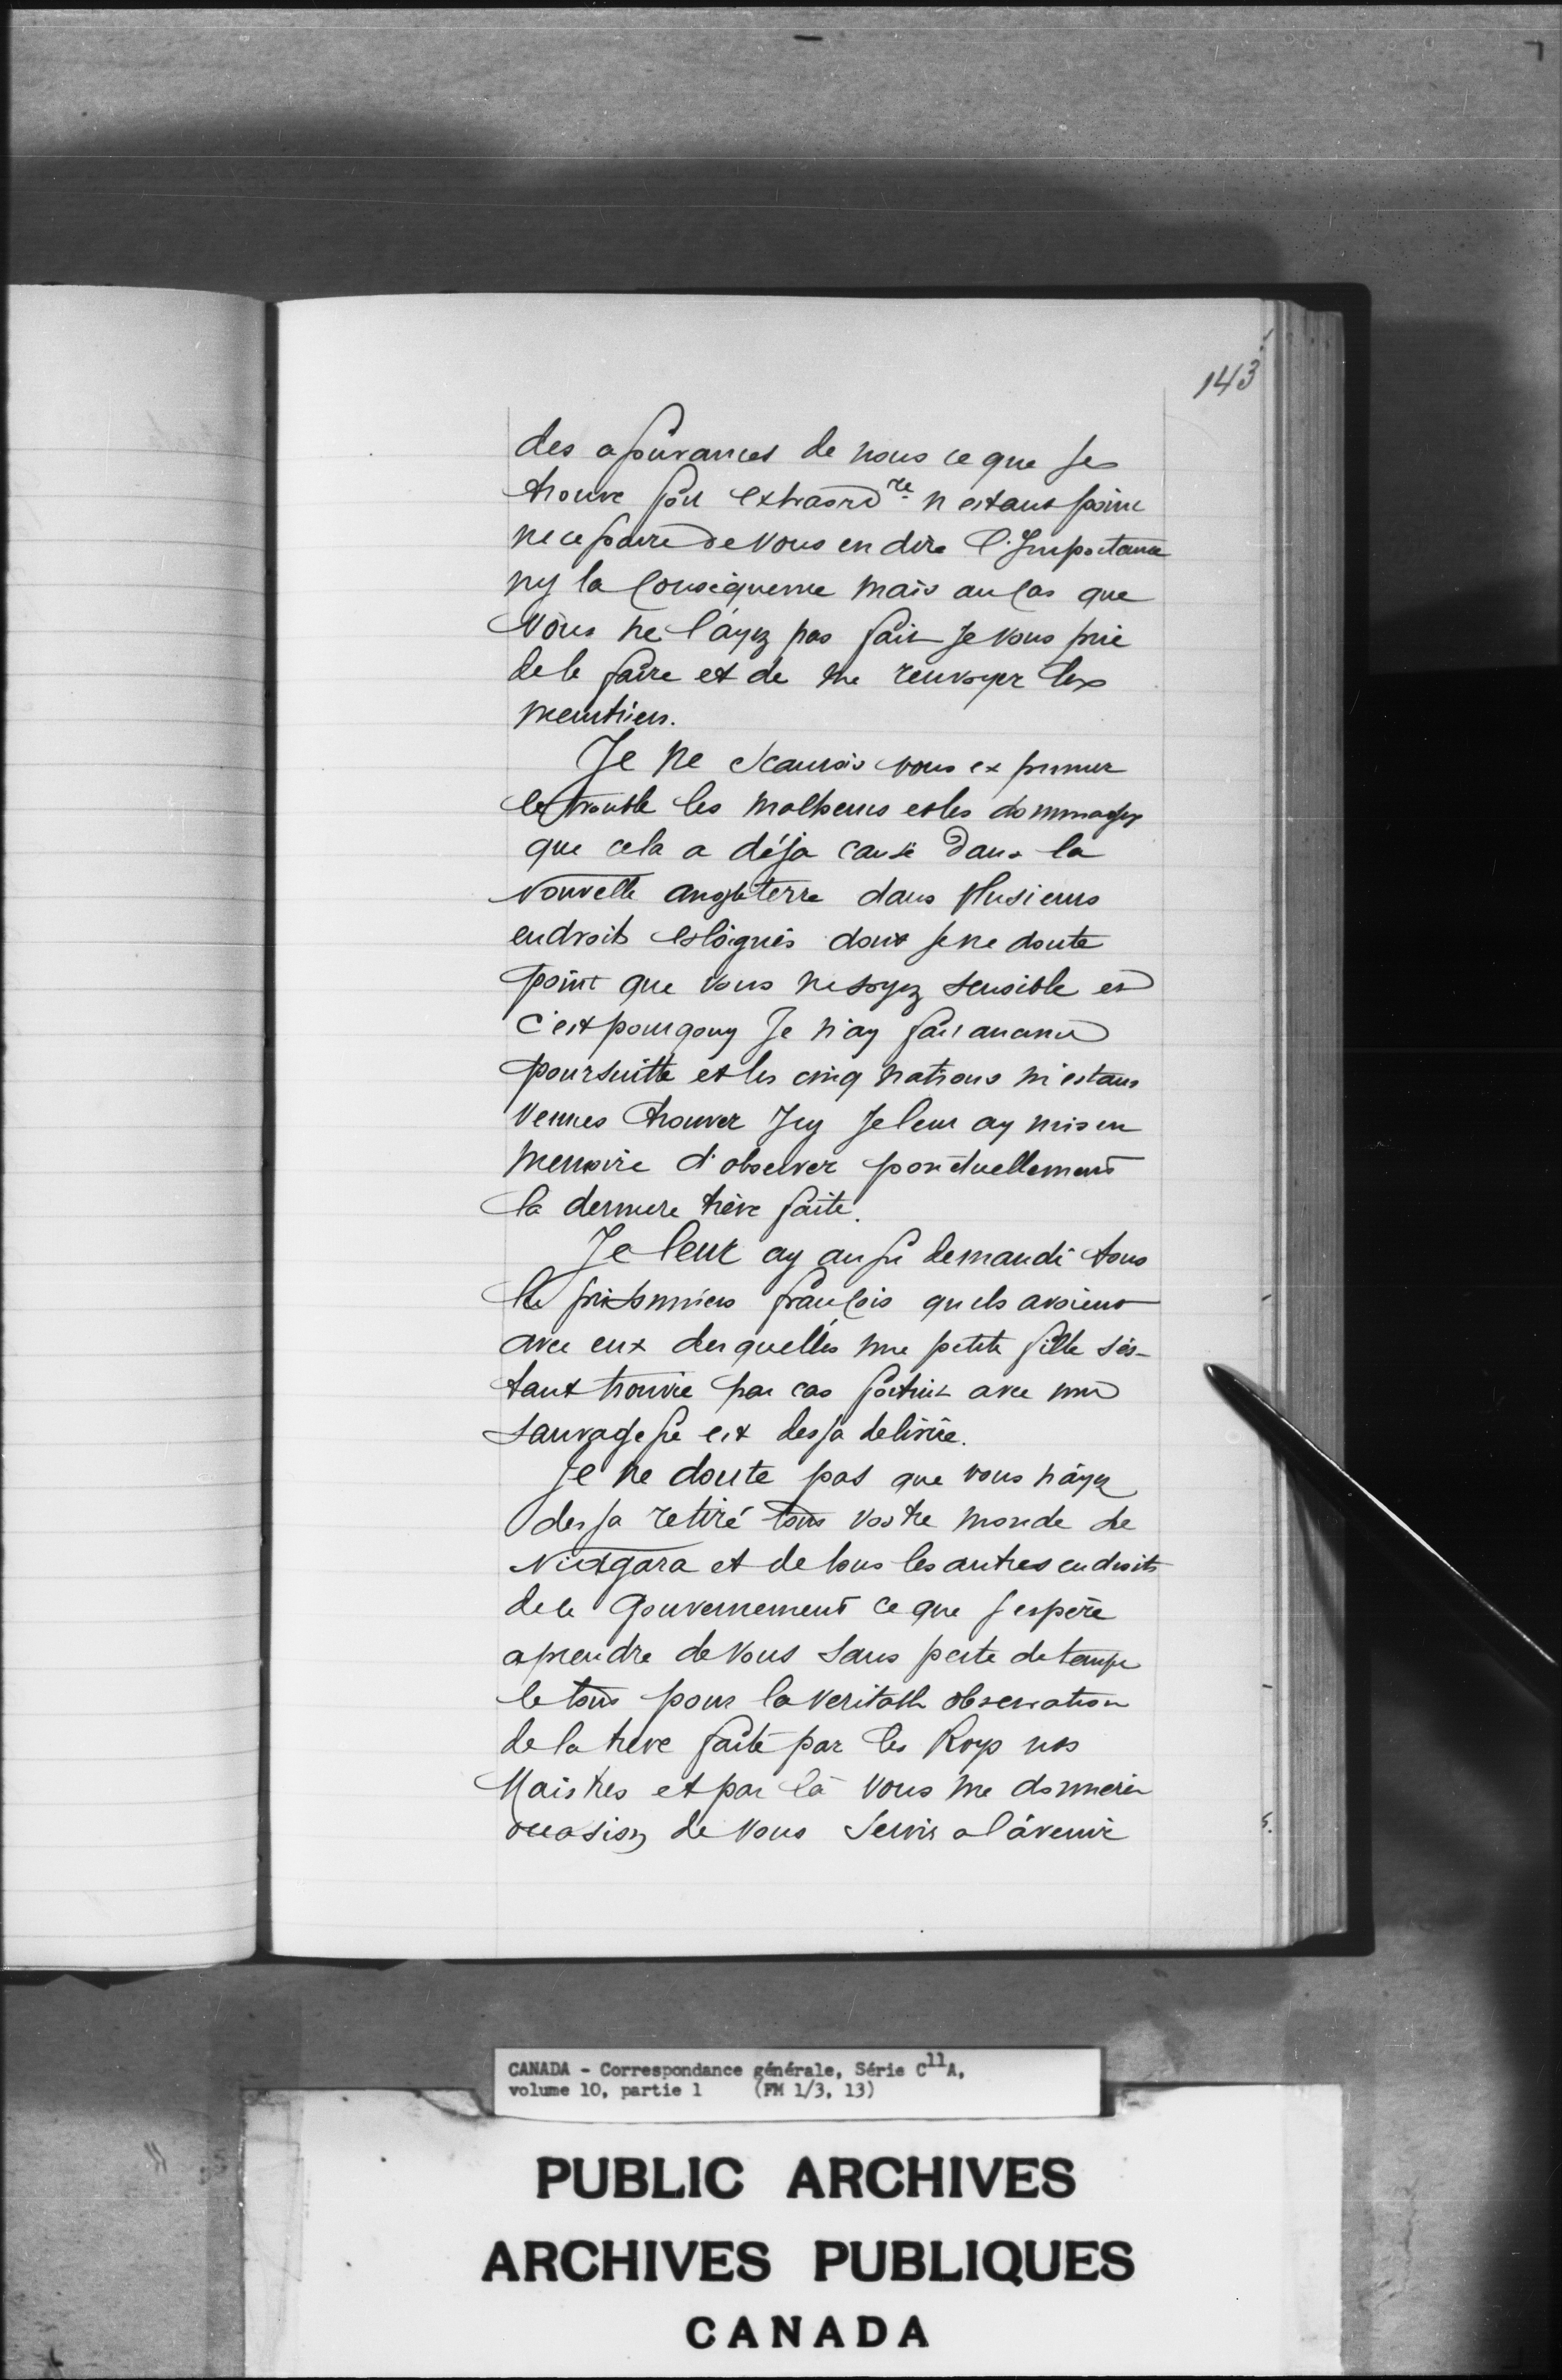 143
des assurances de nous ce que je
trouve fort extraord.re n'estant point
necessaire de vous en dire l'Importance
ny la Consequence mais au cas que
vous ne l'ayez pas fait Je vous prie
de le faire et de me renvoyer les
meurtriers.
Je ne scaurois vous exprimer
le trouble les malheurs et les dommages
que cela a déja causé dans la
Nouvelle angleterre dans plusieurs
endroits esloignés dont je ne doute
point que vous ne soyez sensible et
c'est pourquoy Je n'ay fait aucune
poursuitte et les cinq nations m'estans
venues trouver Icy Je leur ay mis en
memoire d'observer ponctuellement
la derniere trève faite.
Je leur ay aussi demandé tous
les prisonniers françois quils avoient
avec eux desquelles une petite fille s'es-
tant trouvée par cas fortuit avec une
sauvagesse est desja delivrée.
Je ne doute pas que vous n'ayez
desja retiré tous vostre monde de
Niagara et de tous les autres endroits
de ce Gouvernement ce que j'espère
aprendre de vous sans perte de temps
le tous pour la veritable observation
de la treve faite par les Roys nos
Maistres et par là vous me donnerez
occasion de vous servir a l'avenir
CANADA - Correspondance générale, Série C11A,
volume 10, partie 1 (FM 1/3, 13)
PUBLIC ARCHIVES
ARCHIVES PUBLIQUES
CANADA